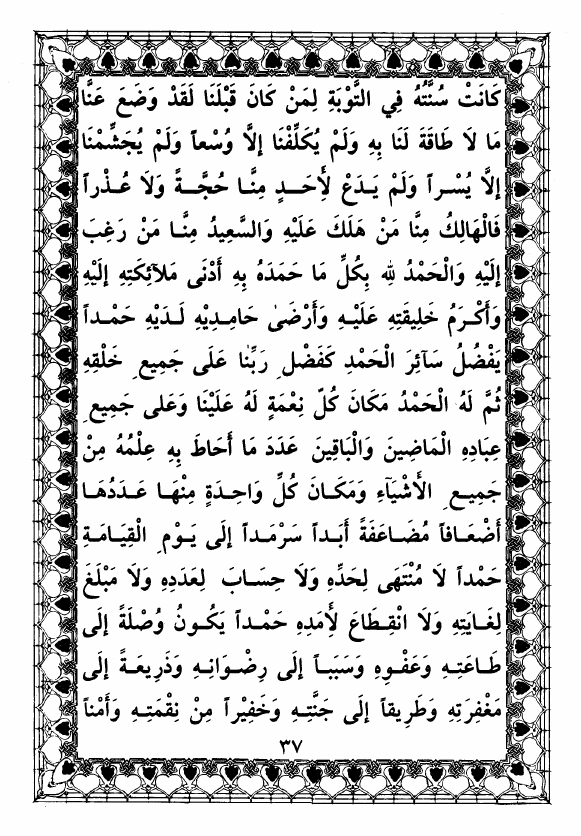 كَانَتْ سُنَّتُهُ فِي التَّوْبَةِ لِمَنْ كَانَ قَبْلَنَا لَقَدْ وَضَعَ عَنَّا
مَا لَا طَاقَةَ لَنَا بِهِ وَلَمْ يُكَلِّفْنَا إلَّا وُسْعاً وَلَمْ يُجَشِّمْنَا
إلَّا يُسْراً وَلَمْ يَدَعْ لِأَحَدٍ مِنَّا حُجَّةً وَلَا عُذْراً
فَالْهَالِكُ مِنَّا مَنْ هَلَكَ عَلَيْهِ وَالسَّعِيدُ مِنَّا مَنْ رَغِبَ
إلَيْهِ وَالْحَمْدُ لله بِكُلِّ مَا حَمَدَهُ بِهِ أَدْنَى مَلآئِكَتِهِ إلَيْهِ
وَأَكْرَمُ خَلِيقَتِهِ عَلَيْهِ وَأَرْضَىٰ حَامِدِيْهِ لَدَيْهِ حَمْداً
يَفْضُلُ سَآئِرَ الْحَمْدِ كَفَضْلِ رَبِّنا عَلَى جَمِيعِ خَلْقِهِ
ثُمَّ لَهُ الْحَمْدُ مَكَانَ كُلِّ نِعْمَةٍ لَهُ عَلَيْنَا وَعَلى جَمِيعِ
عِبَادِهِ الْمَاضِينَ وَالْبَاقِينَ عَدَدَ مَا أَحَاطَ بِهِ عِلْمُهُ مِنْ
جَمِيعِ الأَشْيَآءِ وَمَكَانَ كُلِّ وَاحِدَةٍ مِنْهَا عَدَدُهَا
أَضْعَافاً مُضَاعَفَةً أَبَداً سَرْمَداً إلَى يَوْمِ الْقِيَامَةِ
حَمْداً لَا مُنْتَهَى لِحَدِّهِ وَلَا حِسَابَ لِعَدَدِهِ وَلَا مَبْلَغَ
لِغَايَتِهِ وَلَا انْقِطَاعَ لِأَمَدِهِ حَمْداً يَكُونُ وُصْلَةً إلَى
طَاعَتِهِ وَعَفْوِهِ وَسَبَباً إلَى رِضْوَانِهِ وَذَرِيعَةً إلَى
مَغْفِرَتِهِ وَطَرِيقاً إلَى جَنَّتِهِ وَخَفِيْراً مِنْ نِقْمَتِهِ وَأَمْناً
٣٧